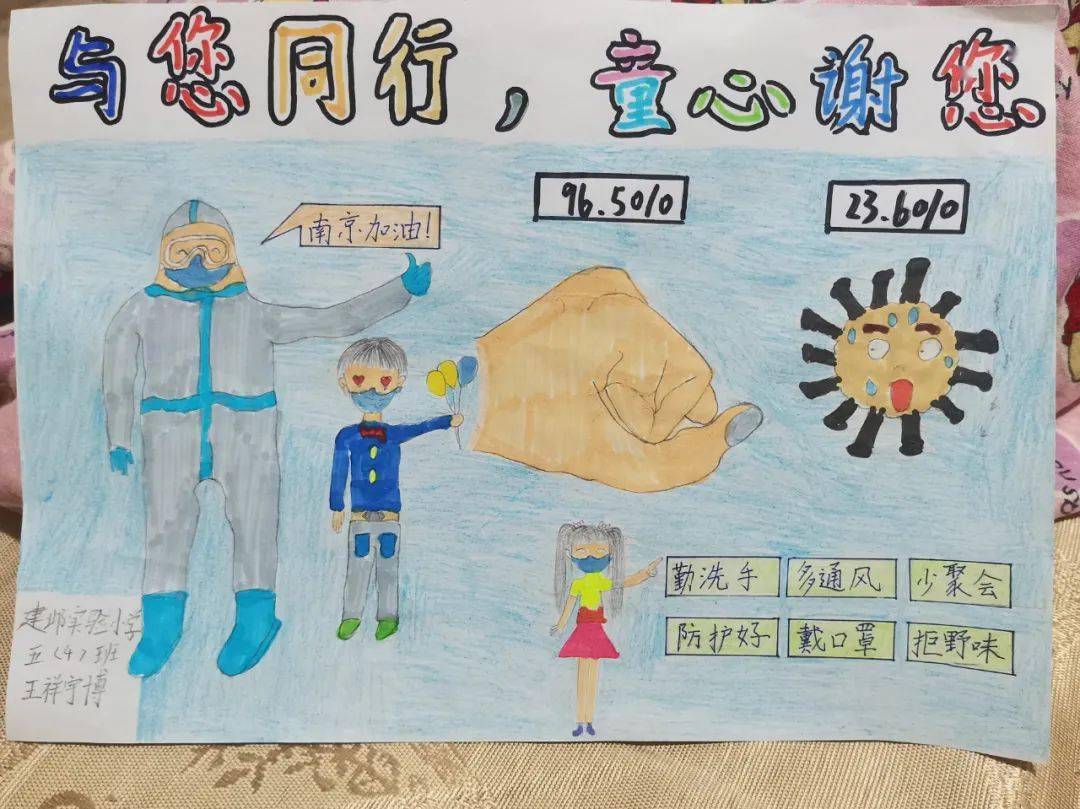 与您同行，童心谢您
南京加油！
96.5%
23.6%
勤洗手 多通风 少聚会
防护好 戴口罩 拒野味
建邺实验小学
五（4）班
王祥宇博